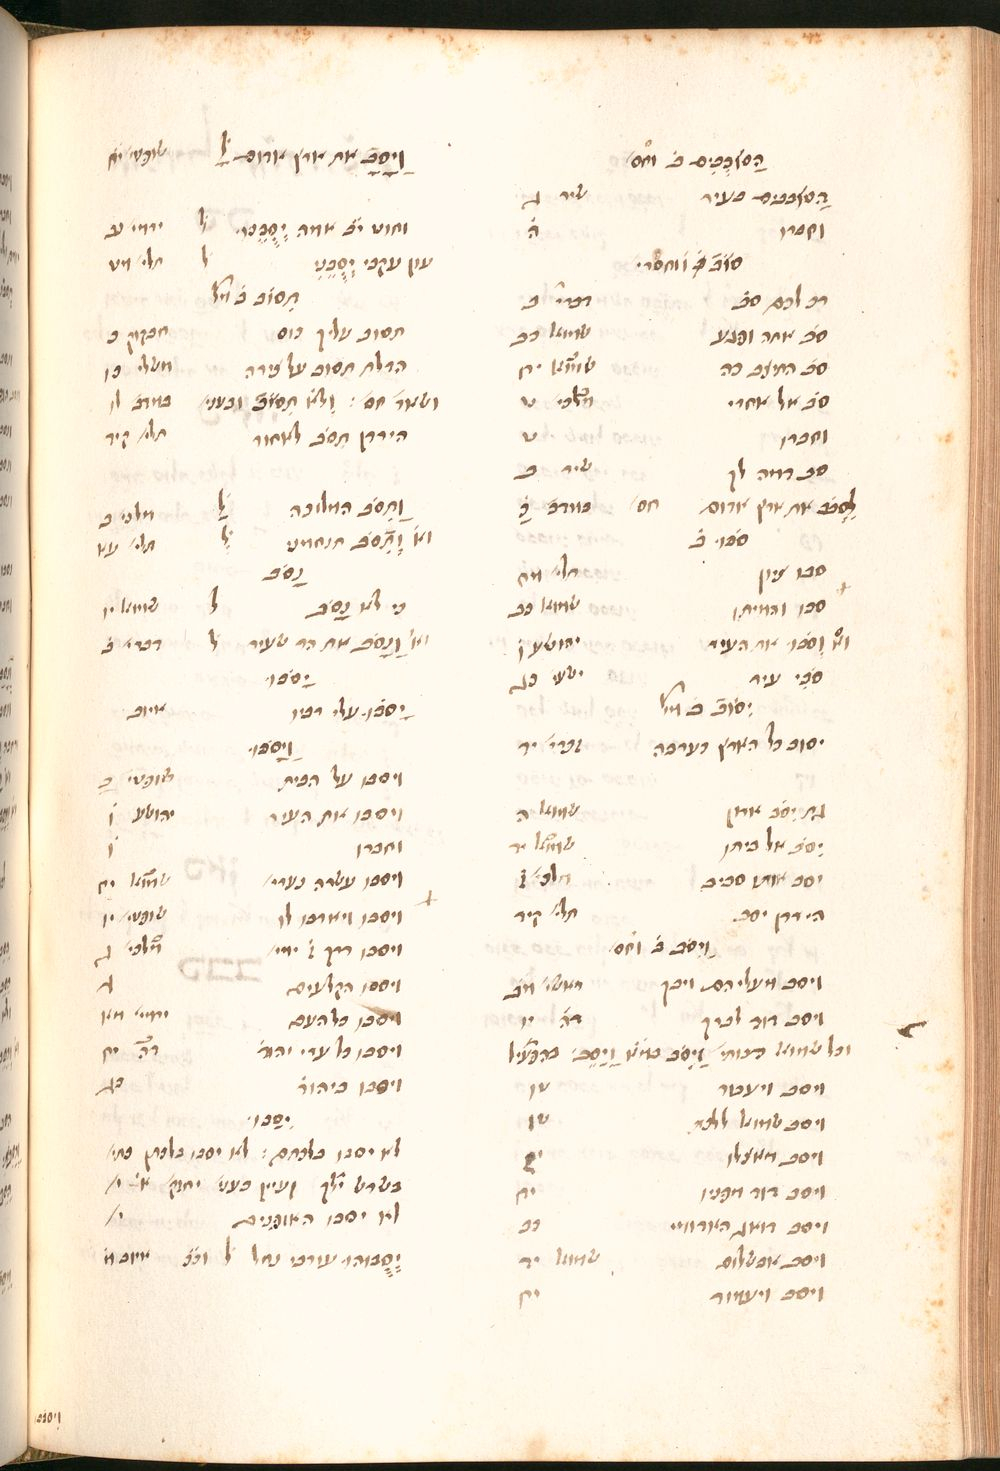 הַסֹּבְבִים ב' וחס'
הַסֹּבְבִים בעיר שיר ג
וחברו ה
סֹב וחסרי
רב לכם סֹב דברי ב
סֹב אתה ופגע שמוא' כב
סֹב התיצב כה שמוא' יח
סֹב אל אחרי מלכי ט
וחברו ט
סב דמה לך שיר ב
לִסְבֹב את ארץ אדום חס' במדבר
סֹבּוּ ב
סבו ציון תלי' מח
סבו והמיתו שמוא' כב
וא' וְסֹבּוּ את העיר יהושע ו
סֹבִּי עיר ישעי' כג
יִסּוֹב ב' מל'
יסוב כל הארץ כערבה זכרי' יד
גת יִסֹּב ארון שמוא' ה
יִסֹּב אל ביתו שמוא' יד
יסב אותו סביב מלכי' ז
הירדן יסב תלי' קיד
וַיִּסֹּב ב' וחס'
ויסב מעליהם ויבך בראשי' מב
ויסב דוד לברך ד"ה יו
וכל שמוא' דכותי' וַיִּסֹּב
ויסב ויעבור טו
ויסב שמוא' ללכת טו
ויסב מאצלו יז
ויסב דוד מפניו יח
ויסב דואג האדומי כב
ויסב אבשלום שמוא' יד
ויסב ויעמוד יח
וַיָּסָב את ארץ אדום ל' שופטי' יא
וחוט יב אמה יָסֹב ל' ירמי' נב
עון עקבי יְסֻבֵּנִי ל' תלי' מט
תִסּוֹב ב' מל'
תסוב עליך כוס חבקוק ב
הדלת תסוב על צירה משלי כו
ושאר' חס': וְלֹא תִסֹּב במדב' לו
הירדן תִסֹּב לאחור תלי' קיד
וַתִּסֹּב המלוכה ל' מלכי' ב
וא' וְתִסֹּב תנחמני ל' תלי' עא
נָסֹב
כי לא נָסֹב ל' שמוא' יו
וא' וַנָּסָב את הר שעיר ל' דברי' ב
יָסֹבּוּ
יָסֹבּוּ עלי רביו איוב
וַיָּסֹבּוּ
ויסבו על הבית שופטי' כ
ויסבו את העיר יהושע ו
וחברו ו
ויסבו עשרה נערי' שמוא' יח
ויסבו ויארבו לו שופטי' יו
ויסבו דרך ז' ימי' מלכי' ג
ויסבו הקלעים ג
ויסבו כל העם ירמי' מא
ויסבו כל ערי יהוד' ד"ה יח
ויסבו ביהוד' כג
יִסַּבּוּ
לא יסבו בלכתם: לא יסבו בלכתן
בשרש ילך ועיין בעני' יחזק' א' י'
לא יסבו האופנים י'
יְסֻבּוּהוּ עורבי נחל ל' וכ' איוב מ
ויסבו